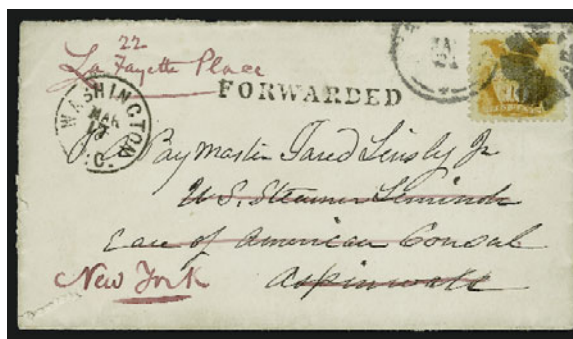 22
La Fayette Place
FORWARDED
WASHINGTON
MAR
D.C.
10
Pay Master Jared Linsly Jr
U.S. Steamer Seminole
Care of American Consul
New York Aspinwall